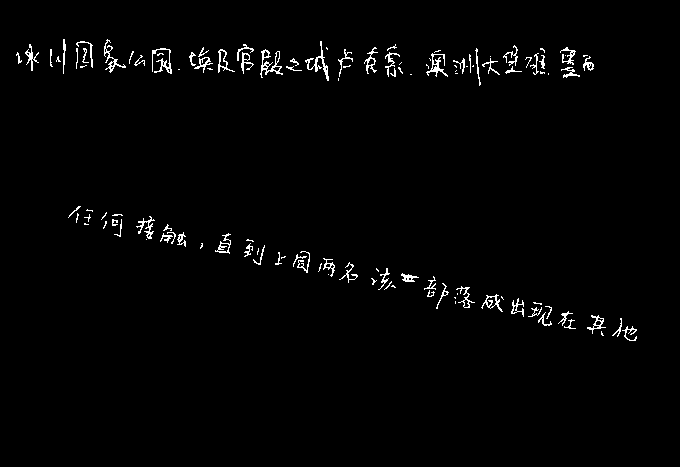 冰川国家公园、埃及宫殿之城卢克索、澳洲大堡礁、墨西
任何接触，直到上周两名该部落成出现在其他